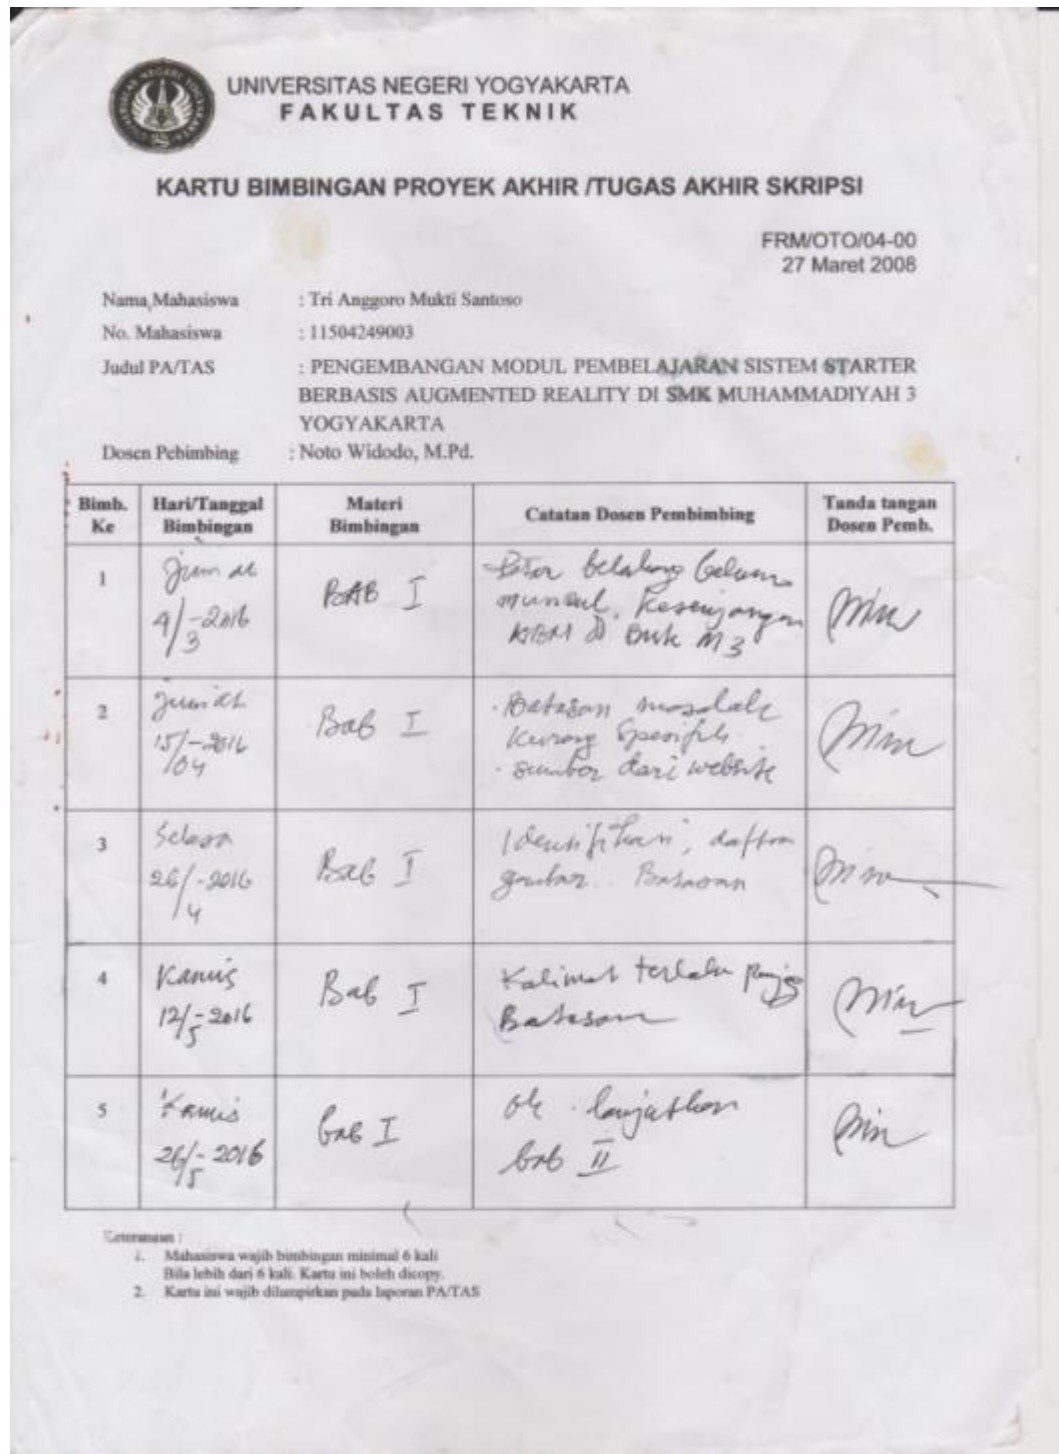 UNIVERSITAS NEGERI YOGYAKARTA
FAKULTAS TEKNIK
KARTU BIMBINGAN PROYEK AKHIR /TUGAS AKHIR SKRIPSI
FRM/OTO/04-00
27 Maret 2008
Nama Mahasiswa : Tri Anggoro Mukti Santoso
No. Mahasiswa : 11504249003
Judul PA/TAS : PENGEMBANGAN MODUL PEMBELAJARAN SISTEM STARTER
BERBASIS AUGMENTED REALITY DI SMK MUHAMMADIYAH 3
YOGYAKARTA
Dosen Pebimbing : Noto Widodo, M.Pd.
Bimb. Ke Hari/Tanggal Bimbingan Materi Bimbingan Catatan Dosen Pembimbing Tanda tangan Dosen Pemb.
1 Jum at BAB I belakang belum
/3-2016 muncul, Kesenjangan
M3
2 Jum'at Bab I . Batasan masalah
15/04-2016 kurang spesifik
. sumber dari website
3 Selasa Bab I Identifikasi, daftar
26/4-2016 gambar. Batasan
4 Kamis Bab I Kalimat terlalu panjg
12/5-2016 Batasan
5 Kamis bab I ok. lanjutkan
26/5-2016 bab II
Keterangan :
1. Mahasiswa wajib bimbingan minimal 6 kali
Bila lebih dari 6 kali. Kartu ini boleh dicopy.
2. Kartu ini wajib dilampirkan pada laporan PA/TAS